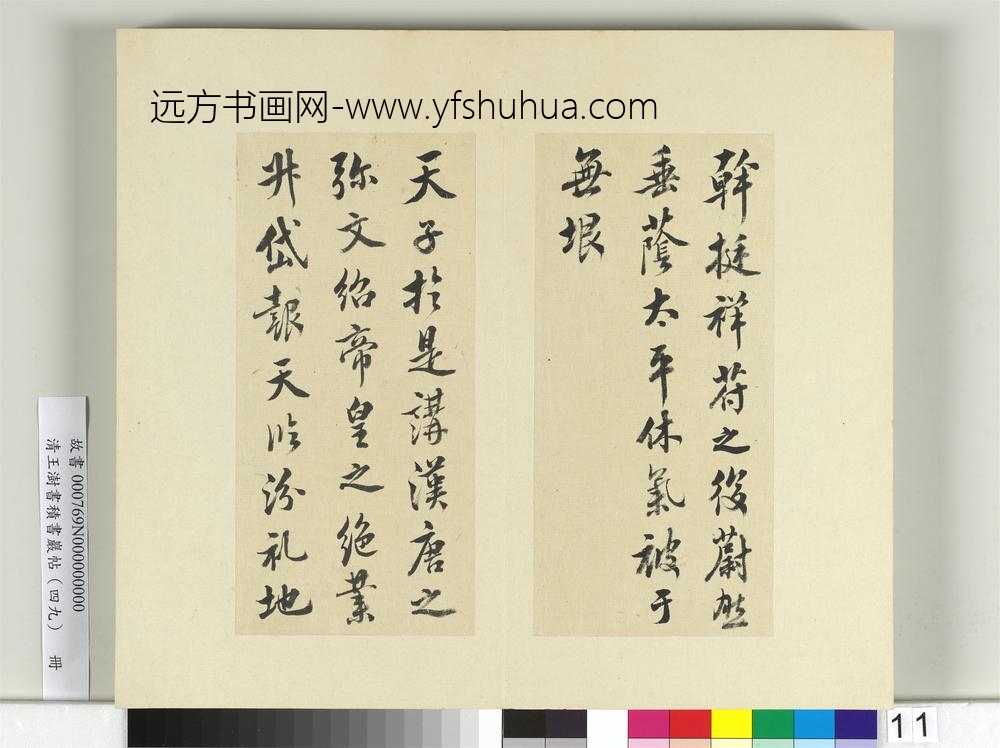 远方书画网-www.yfshuhua.com
幹挺祥符之後蔚然
垂蔭太平休氣被于
無垠
天子於是講漢唐之
弥文紹帝皇之絶業
升岱報天臨汾礼地
故書 000769N000000000
清王澍書積書巖帖(四九) 冊
11